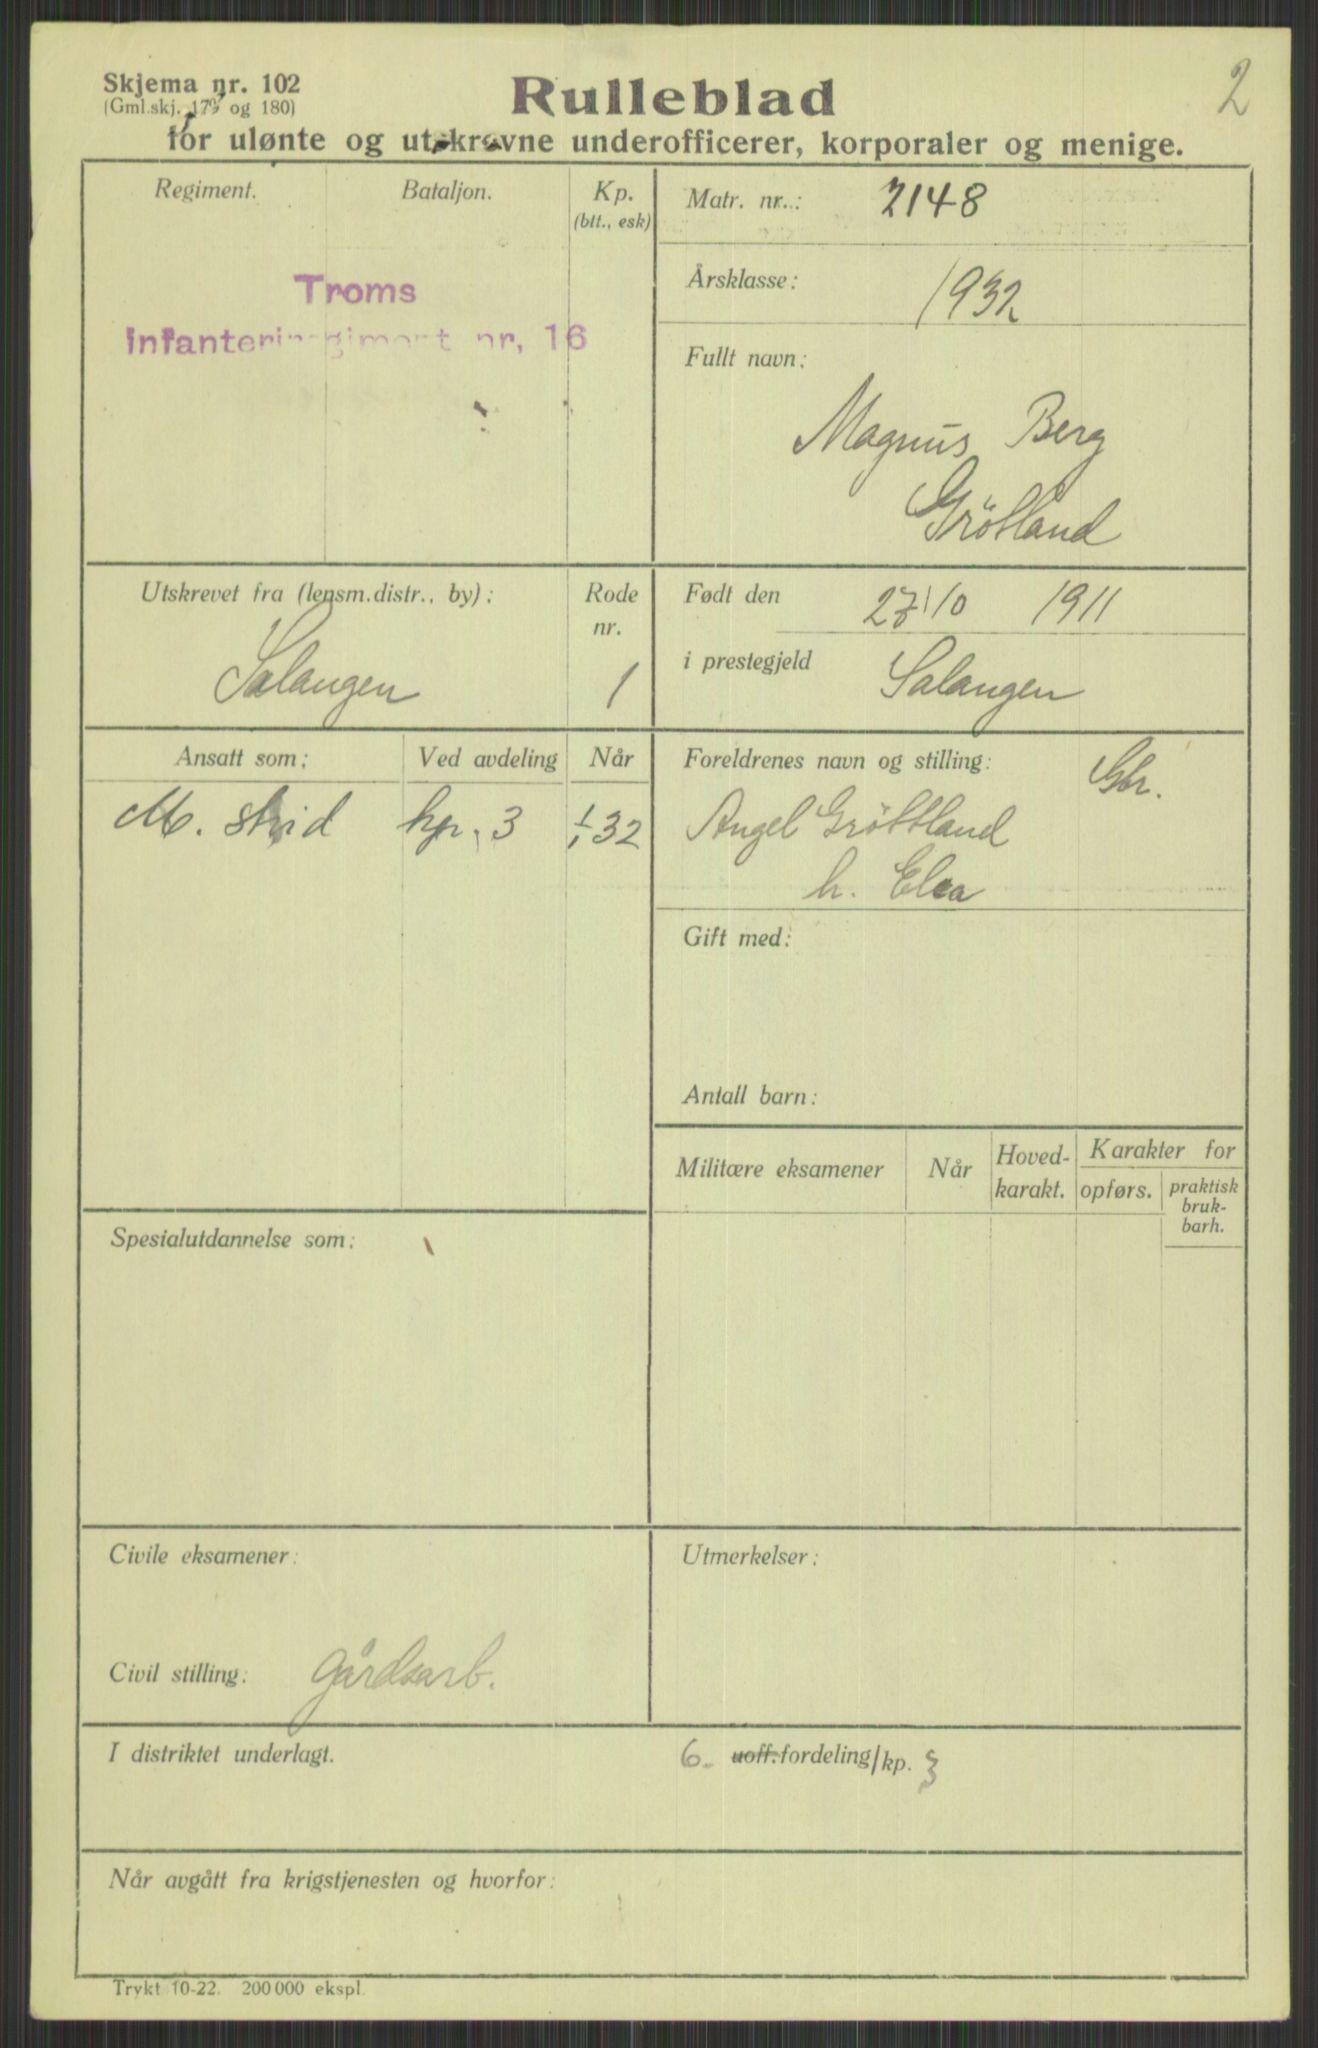 Skjema nr. 102
(Gml.skj. 179 og 180)
2
Rulleblad
for ulønte og utskrevne underofficerer, korporaler og menige.
Regiment.
Bataljon.
Kp.
(btt., esk)
Troms
Infanteriregiment nr. 16
Matr. nr.: 2148
Årsklasse: 1932
Fullt navn:
Magnus Berg
Gröttland
Utskrevet fra (lensm.distr., by):
Salangen
Rode
nr.
1
Født den 27/10 1911
i prestegjeld Salangen
Ansatt som:
Ved avdeling
Når
M. strid kp. 3 1/1 32
Foreldrenes navn og stilling: Gbr.
Angel Gröttland
h. Elea
Gift med:
Antall barn:
Militære eksamener
Når
Hoved-
karakt.
Karakter for
opførs.
praktisk
bruk-
barh.
Spesialutdannelse som:
Civile eksamener:
Civil stilling: Gårdsarb.
Utmerkelser:
I distriktet underlagt.
6. uoff.fordeling/kp. 3
Når avgått fra krigstjenesten og hvorfor:
Trykt 10-22. 200 000 ekspl.